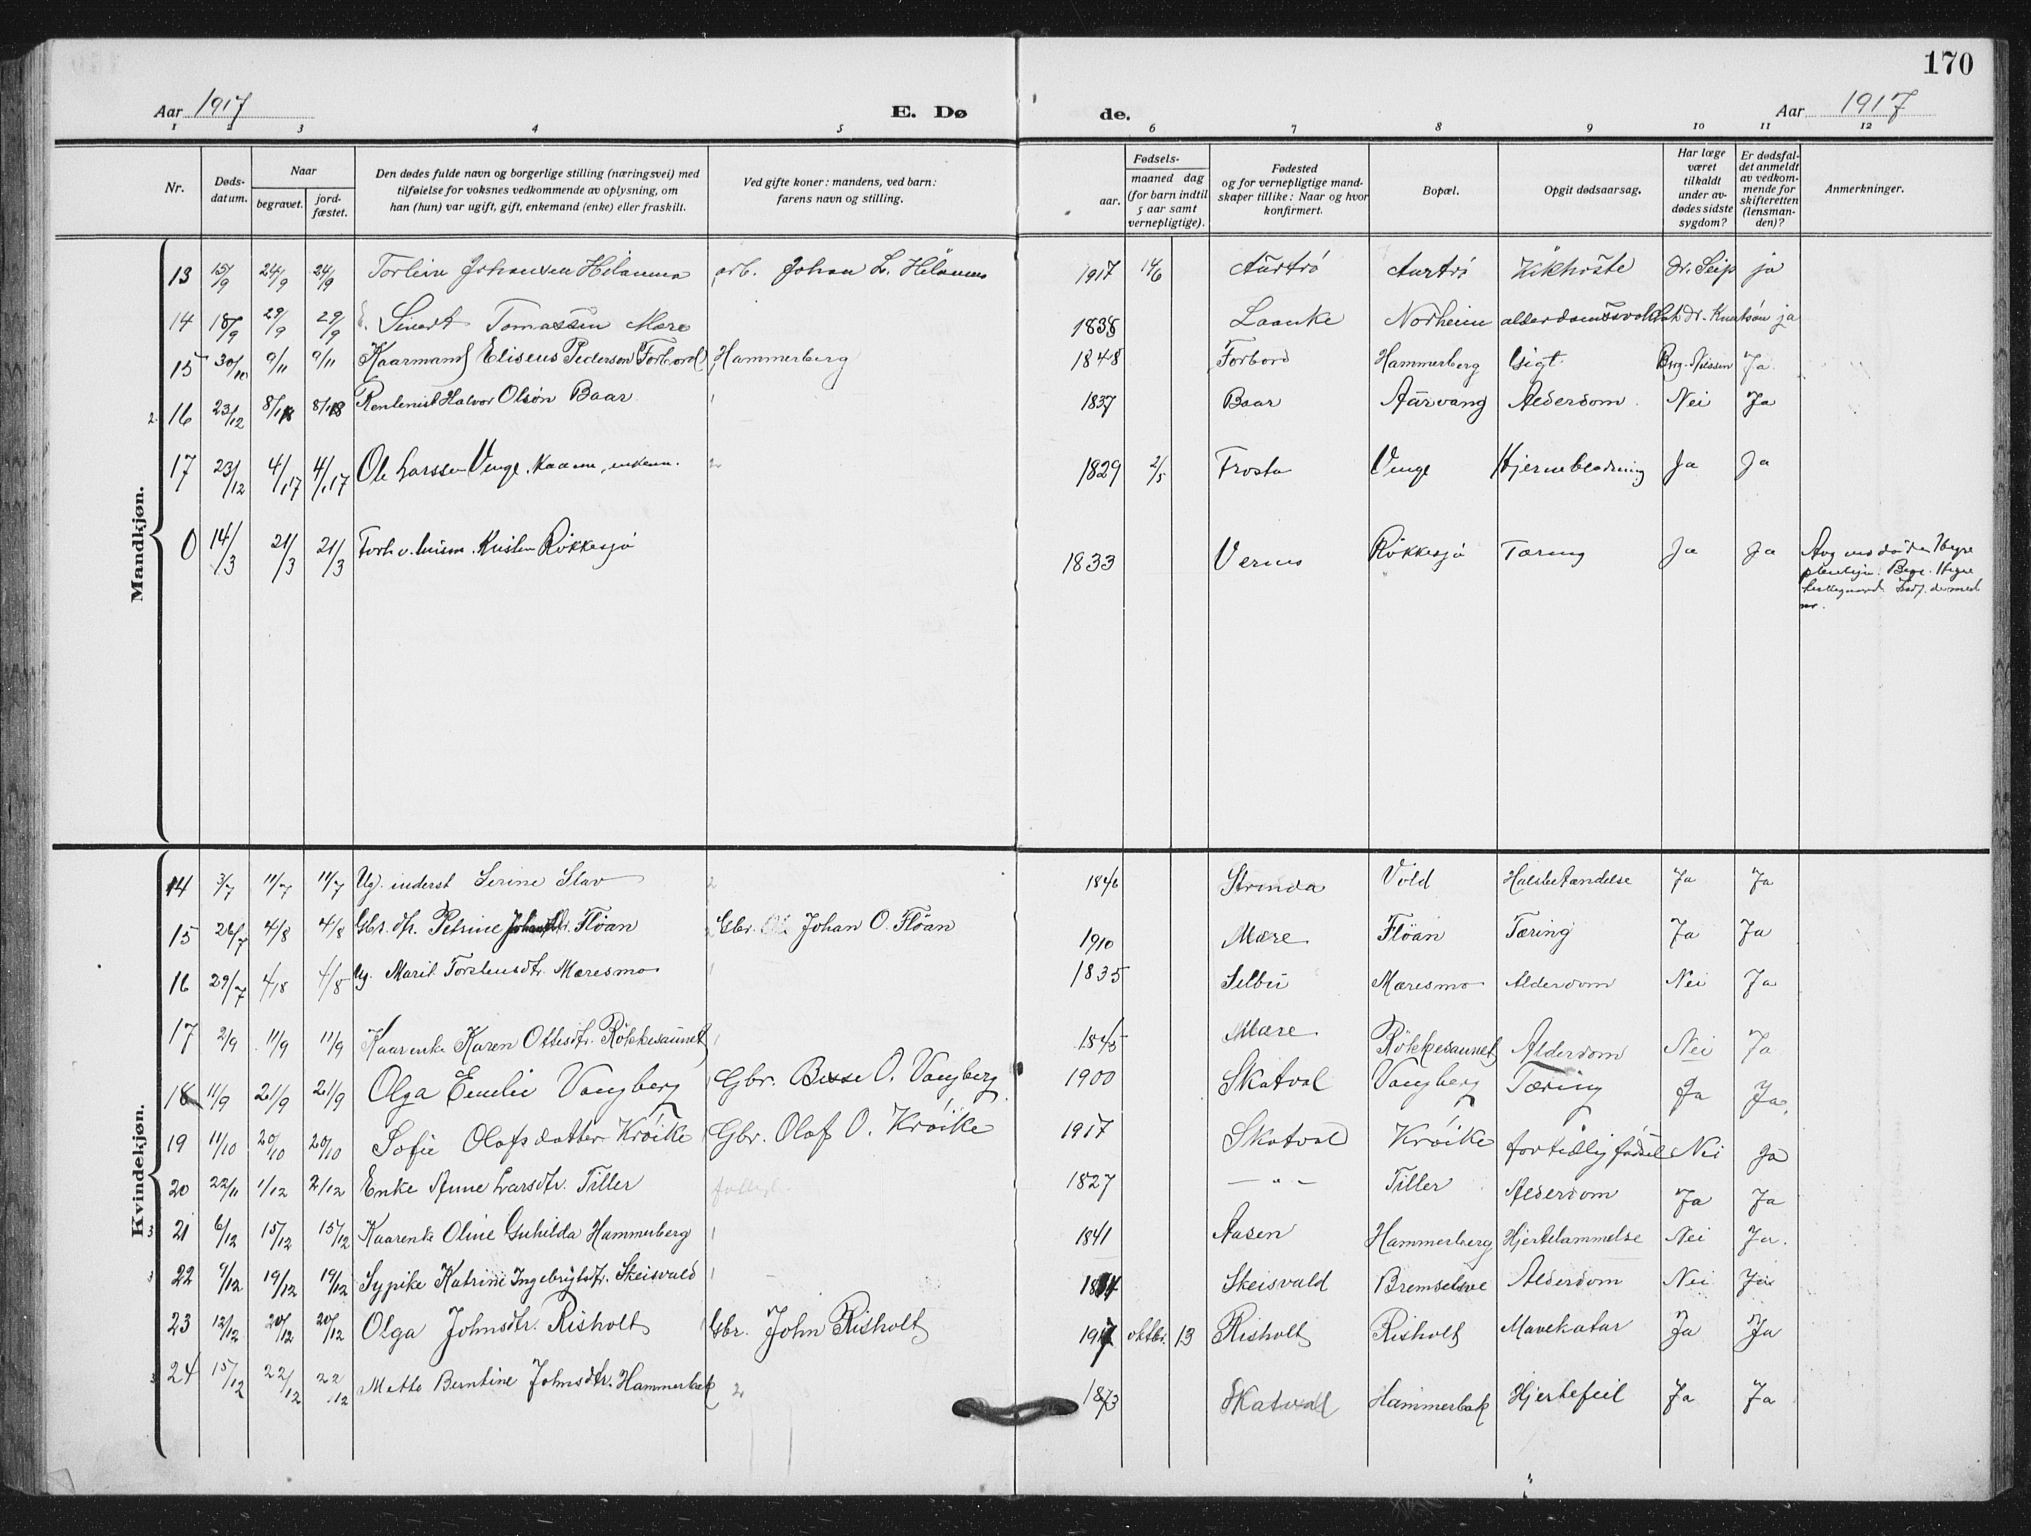 170
Aar 1917 E. Dø de. Aar 1917
1 2 3 4 5 6 7 8 9 10 11 12
Nr. Døds-datum. Naar begravet. jord-fæstet. Den dødes fulde navn og borgerlige stilling (næringsvei) med tilføielse for voksnes vedkommende av oplysning, om han (hun) var ugift, gift, enkemand (enke) eller fraskilt. Ved gifte koner: mandens, ved barn: farens navn og stilling. Fødsels- aar. maaned dag (for barn indtil 5 aar samt vernepligtige). Fødested og for vernepligtige mandskaper tillike: Naar og hvor konfirmert. Bopæl. Opgit dødsaarsag. Har læge været tilkaldt under avdødes sidste sygdom? Er dødsfaldet anmeldt av vedkommende for skifteretten (lensmanden)? Anmerkninger.
Mandkjøn.
13 15/9 24/9 24/9 Johansen arb. Johan L. 1917 14/6 Aurtrø Aurtrø Kikhoste dr. Seip ja
14 18/9 29/9 29/9 Sivert Tomassen Mære 1838 Laanke Norheim dr. Knutsøn ja
15 30/10 9/11 9/11 Kaarmand Eliseus Pederson Forbord, Hammerberg 1848 Forbord Hammerberg Gigt Ja
2 16 23/12 8/1 18 8/1 18 Rentenist Halvor Olsøn Baar 1837 Baar Aarvang Alderdom. Nei Ja
17 23/12 4/1 17 4/1 17 Ole Larssen Venge. 1829 2/5 Frosta Venge Hjerneblødning Ja Ja
0 14/3 21/3 21/3 Røkkesjø 1833 Vernes Røkkesjø Tæring Ja Ja
Kvindekjøn.
14 3/7 11/7 11/7 Ug. inderst Serine Slav 1846 Strinda Vold Halsbetændelse Ja Ja
15 26/7 4/8 4/8 Gbr. dtr. Petrine Fløan Gbr. Johan O. Fløan 1910 Mære Fløan Tæring Ja Ja
16 29/7 4/8 4/8 Ug. Marit Torstensdtr. Mæresmo 1835 Selbu Mæresmo Alderdom Nei Ja
17 2/9 11/9 11/9 Kaarenke Karen Ottesdtr. Røkkesaunet 1845 Mære Røkkesaunet Alderdom Nei Ja
18 11/9 21/9 21/9 Olga Emelie Vangberg Gbr. O. Vangberg 1900 Skatval Vangberg Tæring Ja Ja.
19 11/10 20/10 20/10 Sofie Olafsdatter Krøike Gbr. Olaf O. Krøike 1917 Skatval Krøike for tidlig fødsel Nei Ja
20 22/11 1/12 2/12 Enke Anne Larsdtr. Tiller 1827 — " — Tiller Alderdom Ja Ja
3 21 6/12 15/12 15/12 Kaarenke Oline Guhilda Hammerberg 1841 Aasen Hammerberg Hjertelammelse Nei Ja.
3 22 9/12 19/12 19/12 Sypike Katrine Ingebrigtsdtr. Skeisvald Skeisvald Alderdom Nei Ja
23 12/12 20/12 20/12 Olga Johnsdtr. Risholt Gbr. John Risholt 1917 oktbr. 13 Risholt Risholt Mavekatar Ja Ja
3 24 15/12 22/12 22/12 Mette Berntine Johnsdtr. Hammerbek 1873 Skatval Hammerbek Hjertefeil Ja Ja